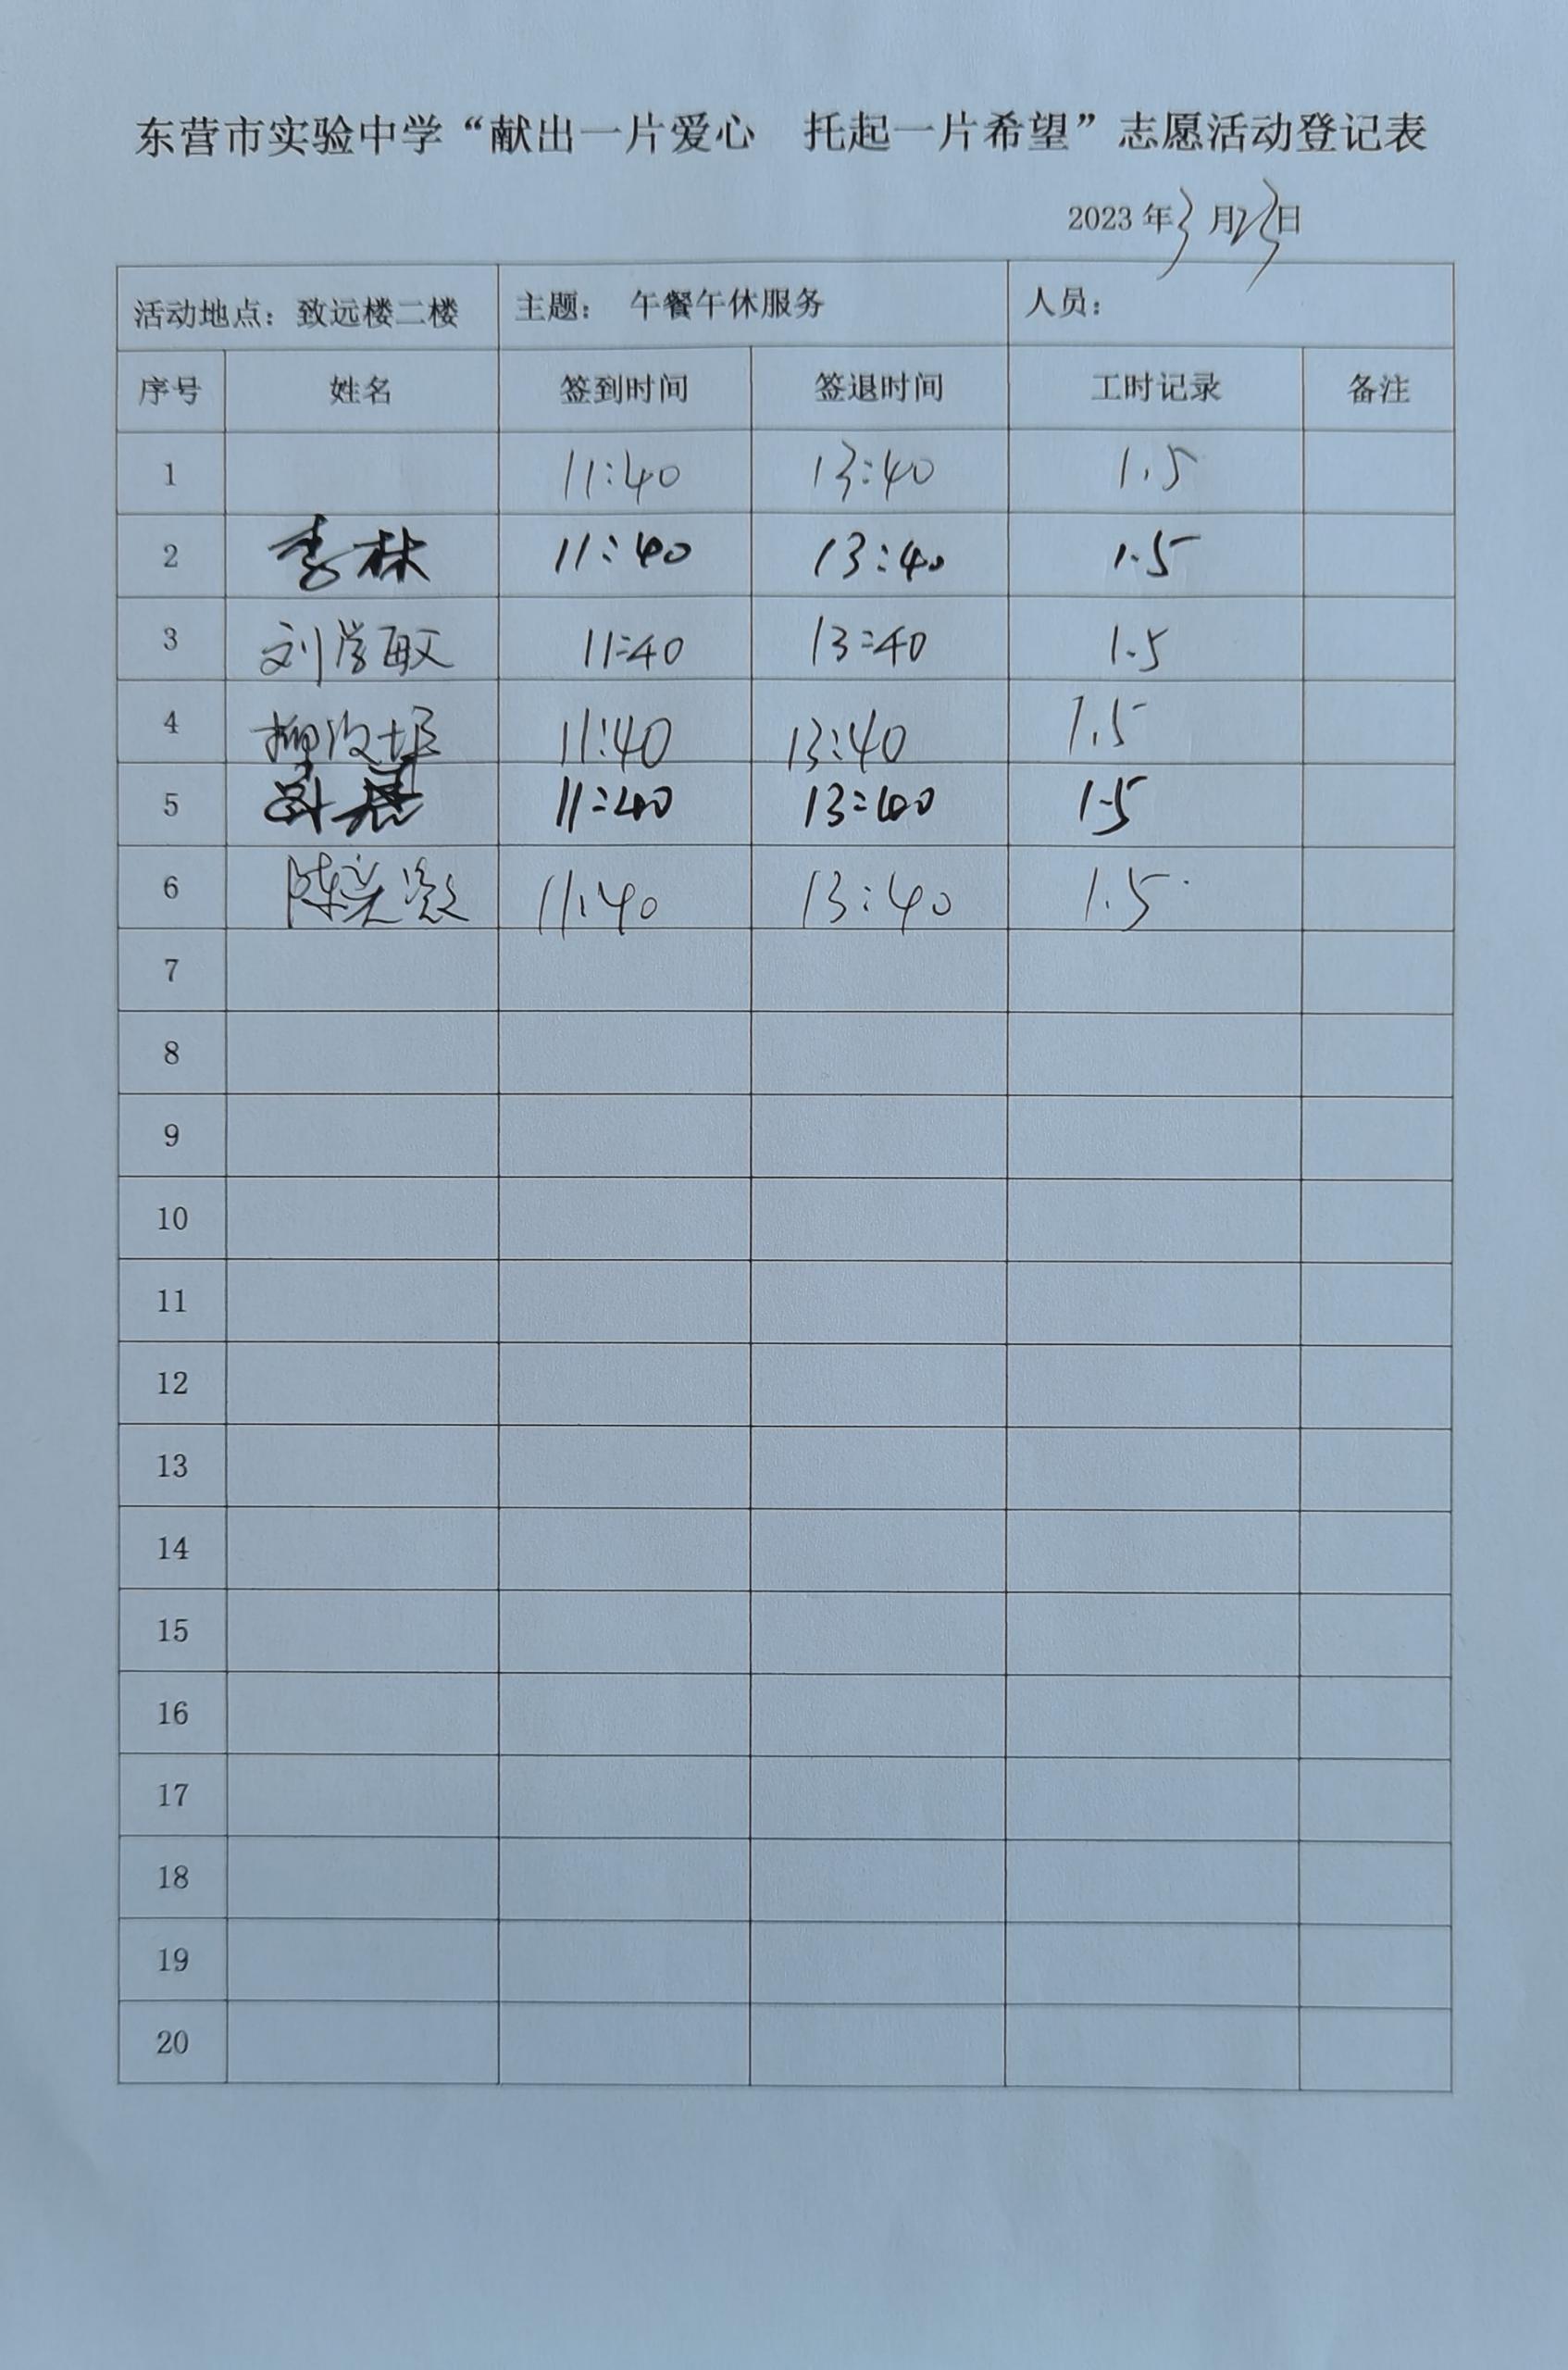 东营市实验中学“献出一片爱心 托起一片希望”志愿活动登记表
2023年3月23日
活动地点：致远楼二楼 主题： 午餐午休服务 人员：
序号 姓名 签到时间 签退时间 工时记录 备注
1 11:40 13:40 1.5
2 李林 11:40 13:40 1.5
3 刘学敏 11:40 13:40 1.5
4 11:40 13:40 1.5
5 11:40 13:40 1.5
6 11:40 13:40 1.5
7
8
9
10
11
12
13
14
15
16
17
18
19
20